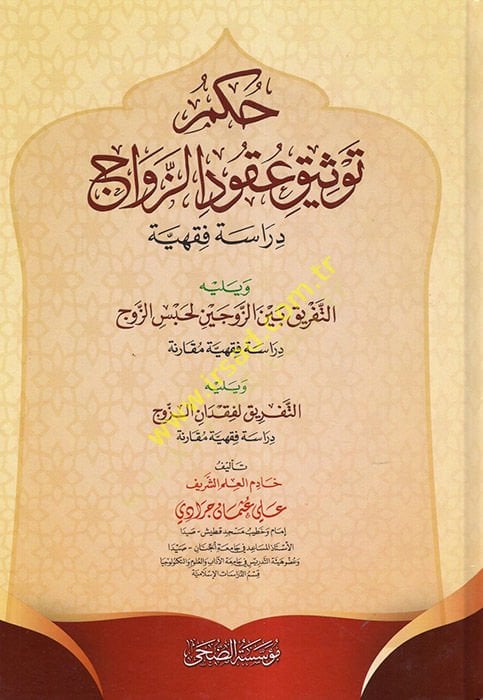 حُكمُ
تَوْثيقِ عُقودِ الزَّوَاجِ
دِرَاسَة فِقهيَّة
وَيَليْه
التَّفْريق بَيْنَ الزَّوجَيْنِ لحَبْسِ الزَّوج
دِرَاسَة فِقهيَّة مُقَارنة
وَيَليْه
التَّفْريق لفِقدَانِ الزَّوج
دِرَاسَة فِقهيَّة مُقَارنة
تَأليْفُ
خَادِم العِلم الشَّريف
عَلي عُثمان جَرادي
إمَام وخَطيب مَسجد قطيش - صَيدَا
الأستاذ المساعد في جَامعة الجنان - صَيْدَا
وعضو هيئة التدريس في جَامعة الآداب والعُلوم والتكنولوجيا
قِسمُ الدّراسَات الإسْلاميَّة
مُؤسَّسَة الضُّحَى
www.irsad.com.tr